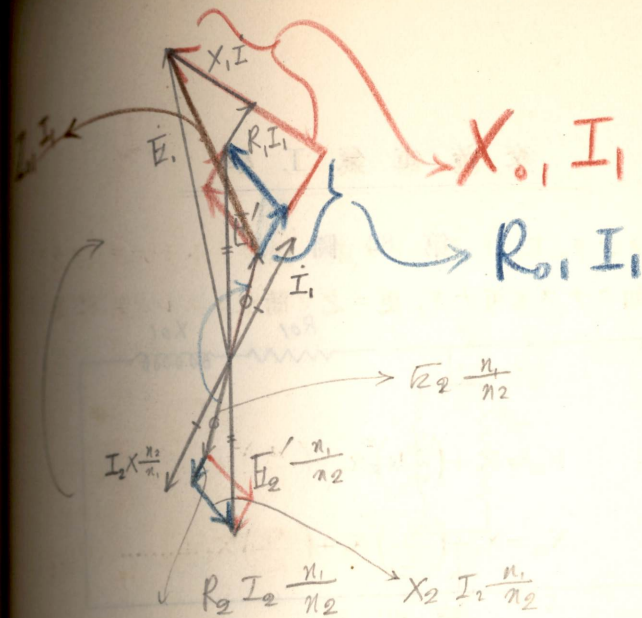 X₁İ
Ė₁
R₁I₁
X₀₁ I₁
İ₁
R₀₁ I₁
E₂ n₁/n₂
I₂ X n₂/n₁
E₂' n₁/n₂
R₂ I₂ n₁/n₂
X₂ I₂ n₁/n₂